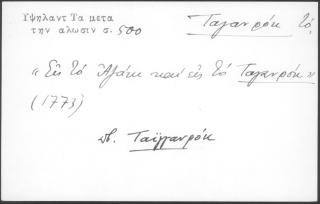 Υψηλαντ Τα μετα
την αλωσιν σ. 500
Ταγανρόκ τό,
« Εἰς τό Ἀζάκ καί εἰς τό Ταγανρόκ »
(1773)
Ταϊγανρόκ